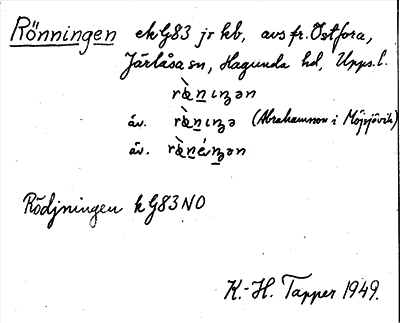 Rönningen ekG83 jr kb, avs fr. Östfora,
Järlåsa sn, Hagunda hd, Upps.l.
rὰ̠nıŋən
äv. rὰ̠nıŋə (Abrahamsson i
äv. rὰ̠néıŋən
Rödjningen k G83 NO
K.-H. Tapper 1949.